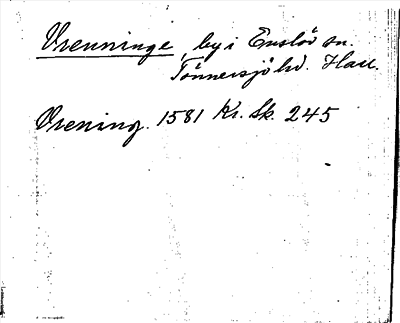 Vrenninge, by i Enslöv sn.
Tönnersjö hd. Hall.
Vrening. 1581 Kr. Sk. 245